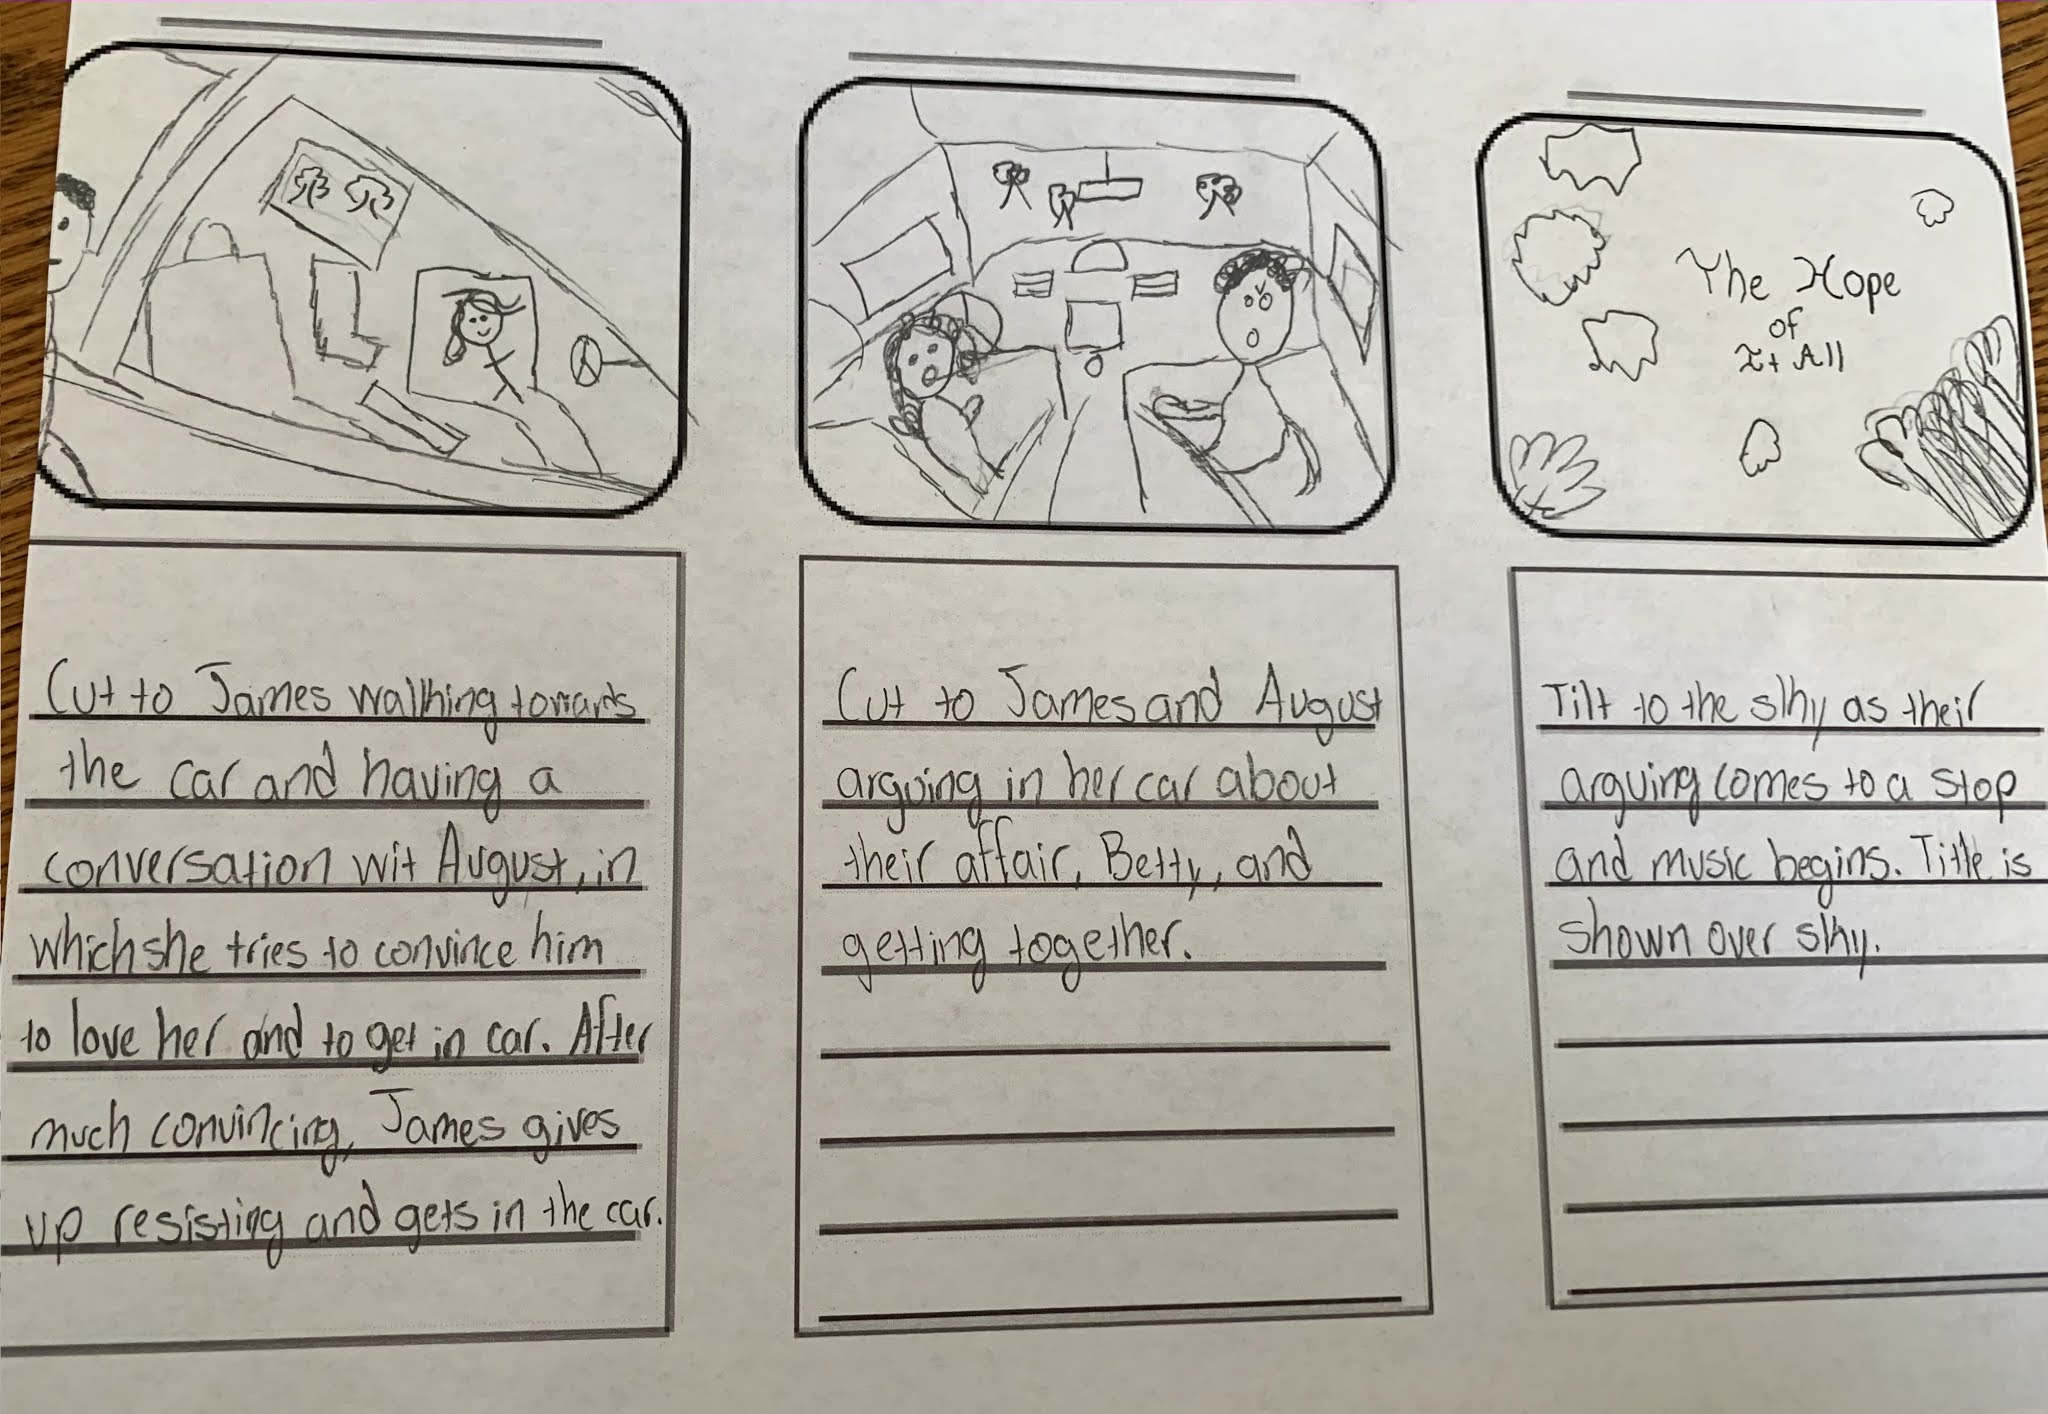 The Hope
of
It All
Cut to James walking towards
the car and having a
conversation wit August, in
which she tries to convince him
to love her and to get in car. After
much convincing, James gives
up resisting and gets in the car.
Cut to James and August
arguing in her car about
their affair, Betty, and
getting together.
Tilt to the sky as their
arguing comes to a stop
and music begins. Title is
shown over sky.